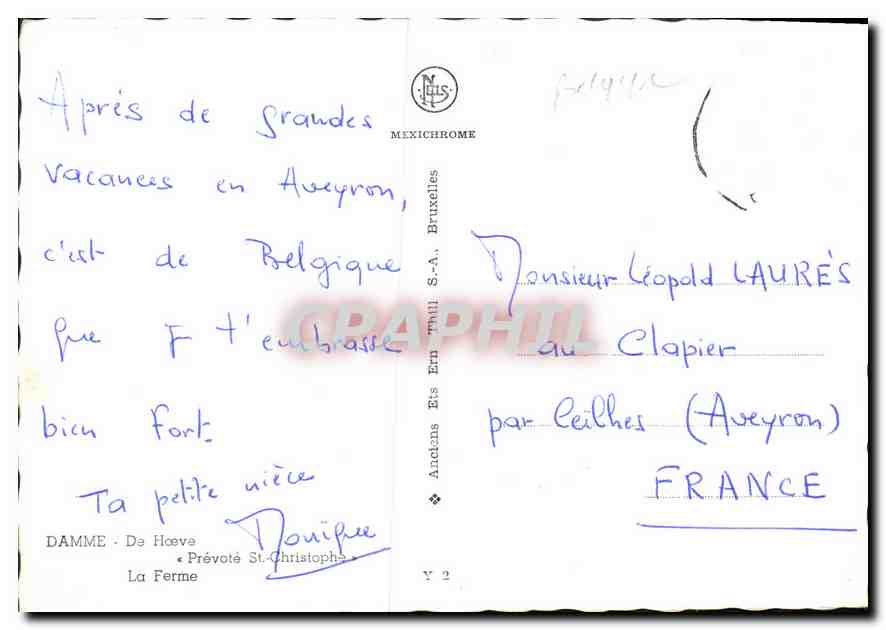 Après de grandes
vacances en Aveyron,
c'est de Belgique
que t'embrasse
bien fort.
Ta petite nièce
Monique
DAMME - De Hœve
« Prévoté St.-Christophe »
La Ferme
NELS
MEXICHROME
❖ Anciens Ets Ern Thill S.-A., Bruxelles
Y 2
Belgique
Monsieur Léopold LAURÉS
au Clapier
par Ceilhes (Aveyron)
FRANCE
CPAPHIL